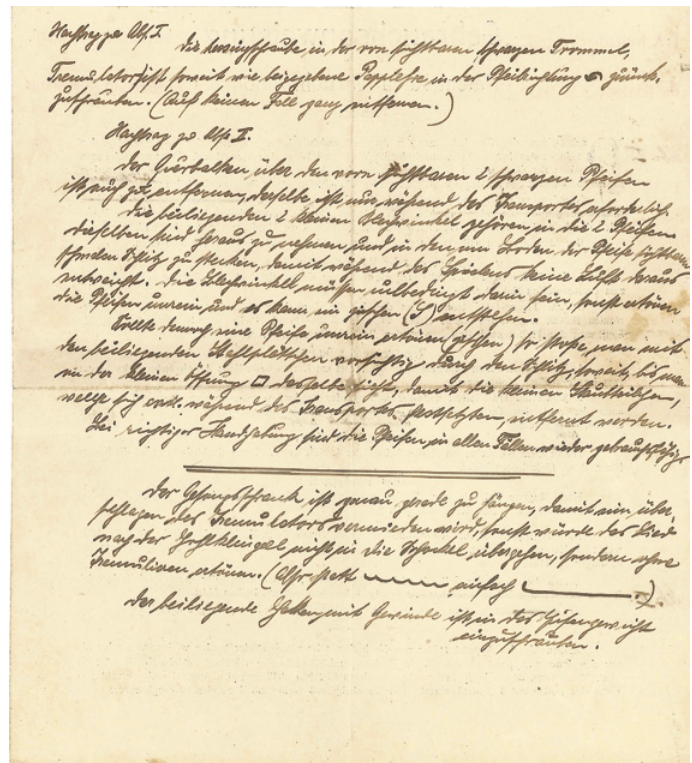 Nachtrag zu Abs. I.
Die Messingschraube in der von sichtbaren schwarzen Trommel,
Tremulator ist soweit wie beigegebene Papplehre in der Pfeilrichtung zurück-
zuschrauben. (Auf keinen Fall ganz entfernen.)
Nachtrag zu Abs. II.
Der Querbalken, über den vorn sichtbaren 2 schwarzen Pfeifen
ist auch zu entfernen, derselbe ist nur während des Transportes erforderlich.
Die beiliegenden 2 kleinen Blechwinkel gehören in die 2 Pfeifen
dieselben sind heraus zu nehmen und in den am Boden der Pfeife sichtbaren
Schlitz zu stecken, damit während des Spielens keine Luft daraus
entweicht. Die Blechwinkel müssen unbedingt darin sein, sonst ertönen
die Pfeifen unrein und es kann ein zischen (S) entstehen.
Sollte dennoch eine Pfeife unrein ertönen (zischen) so stoße man mit
den beiliegenden Stahlplättchen vorsichtig durch den Schlitz, soweit, bis man
in der kleinen Öffnung □ dasselbe sieht, damit die kleinen Staubteilchen,
welche sich evtl. während des Transportes festsetzten, entfernt werden.
Bei richtiger Handhabung sind die Pfeifen in allen Fällen wieder gebrauchsfähig.
Der Gesangsschrank ist genau gerade zu hängen, damit ein über-
schlagen des Tremulators vermieden wird, sonst würde das Lied
nach der nicht in die übergehen, sondern ohne
Tremulieren ertönen. (Also statt einfach .)
Der beiliegende Haken mit Gewinde ist in das Eisengewicht
einzuschrauben.